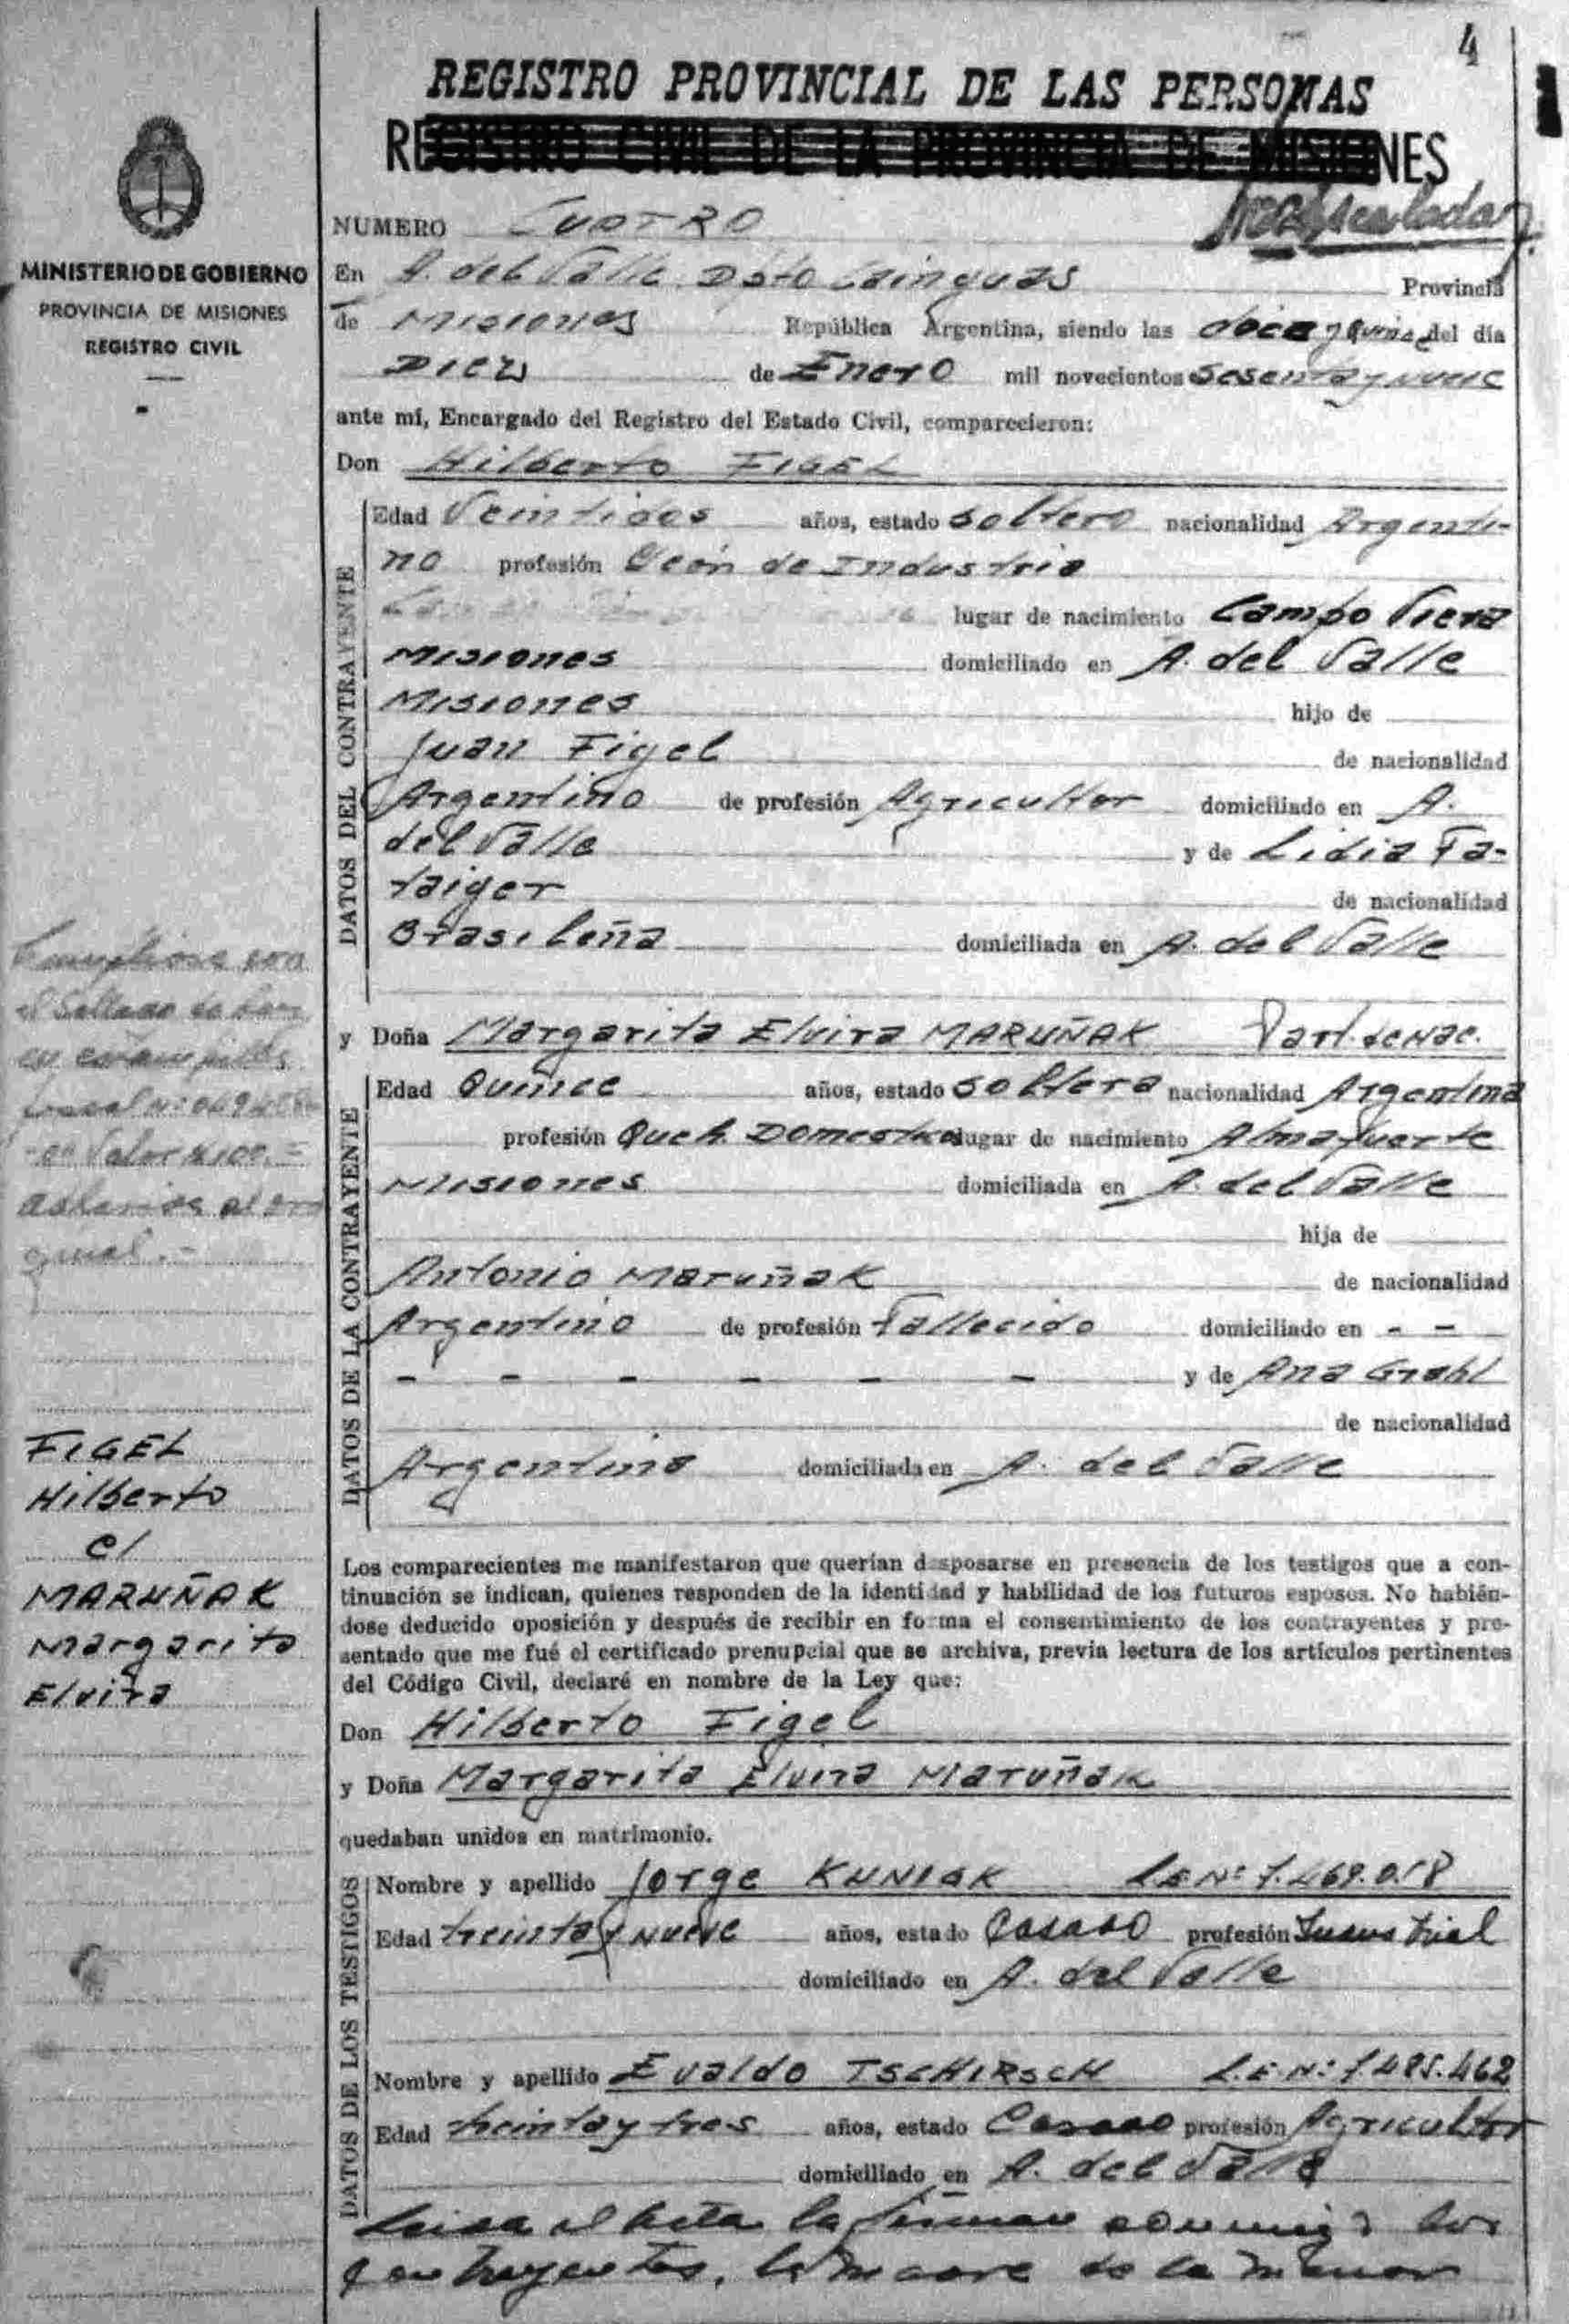 4
REGISTRO PROVINCIAL DE LAS PERSONAS
REGISTRO CIVIL DE LA PROVINCIA DE MISIONES
MINISTERIO DE GOBIERNO
PROVINCIA DE MISIONES
REGISTRO CIVIL
NUMERO CUATRO
En A. del Valle Dpto Cainguas Provincia
de Misiones República Argentina, siendo las doce y quince del día
Diez de Enero mil novecientos sesenta y nueve
ante mí, Encargado del Registro del Estado Civil, comparecieron:
Don Hilberto FIGEL
DATOS DEL CONTRAYENTE
Edad Veintidos años, estado soltero nacionalidad Argenti-
no profesión Peón de Industria
lugar de nacimiento Campo Viera
Misiones domiciliado en A. del Valle
Misiones hijo de
Juan Figel de nacionalidad
Argentino de profesión Agricultor domiciliado en A.
del Valle y de Lidia Fa-
taiger de nacionalidad
Brasileña domiciliada en A. del Valle
y Doña Margarita Elvira MARUÑAK Part. de Nac.
DATOS DE LA CONTRAYENTE
Edad Quince años, estado soltera nacionalidad Argentina
profesión Queh. Domesticos lugar de nacimiento Almafuerte
Misiones domiciliada en A. del Valle
hija de
Antonio Maruñak de nacionalidad
Argentino de profesión Fallecido domiciliado en - -
- - - - - - y de Ana Grahl
de nacionalidad
Argentina domiciliada en A. del Valle
Los comparecientes me manifestaron que querían desposarse en presencia de los testigos que a con-
tinuación se indican, quienes responden de la identidad y habilidad de los futuros esposos. No habién-
dose deducido oposición y después de recibir en forma el consentimiento de los contrayentes y pre-
sentado que me fué el certificado prenupcial que se archiva, previa lectura de los artículos pertinentes
del Código Civil, declaré en nombre de la Ley que:
Don Hilberto Figel
y Doña Margarita Elvira Maruñak
quedaban unidos en matrimonio.
DATOS DE LOS TESTIGOS
Nombre y apellido Jorge KUNIAK L.E.Nº 7.469.018
Edad treinta y nueve años, estado Casado profesión Industrial
domiciliado en A. del Valle
Nombre y apellido Evaldo TSCHIRSCH L.E.Nº: 7.485.462
Edad treinta y tres años, estado Casado profesión Agricultor
domiciliado en A. del Valle
Leida el Acta la firman conmigo los
contrayentes, la madre de la menor
el Sellado de Ley
en estampilla
fiscal Nº
Valor
adherida al ori
ginal.-
FIGEL
Hilberto
c/
MARUÑAK
Margarita
Elvira